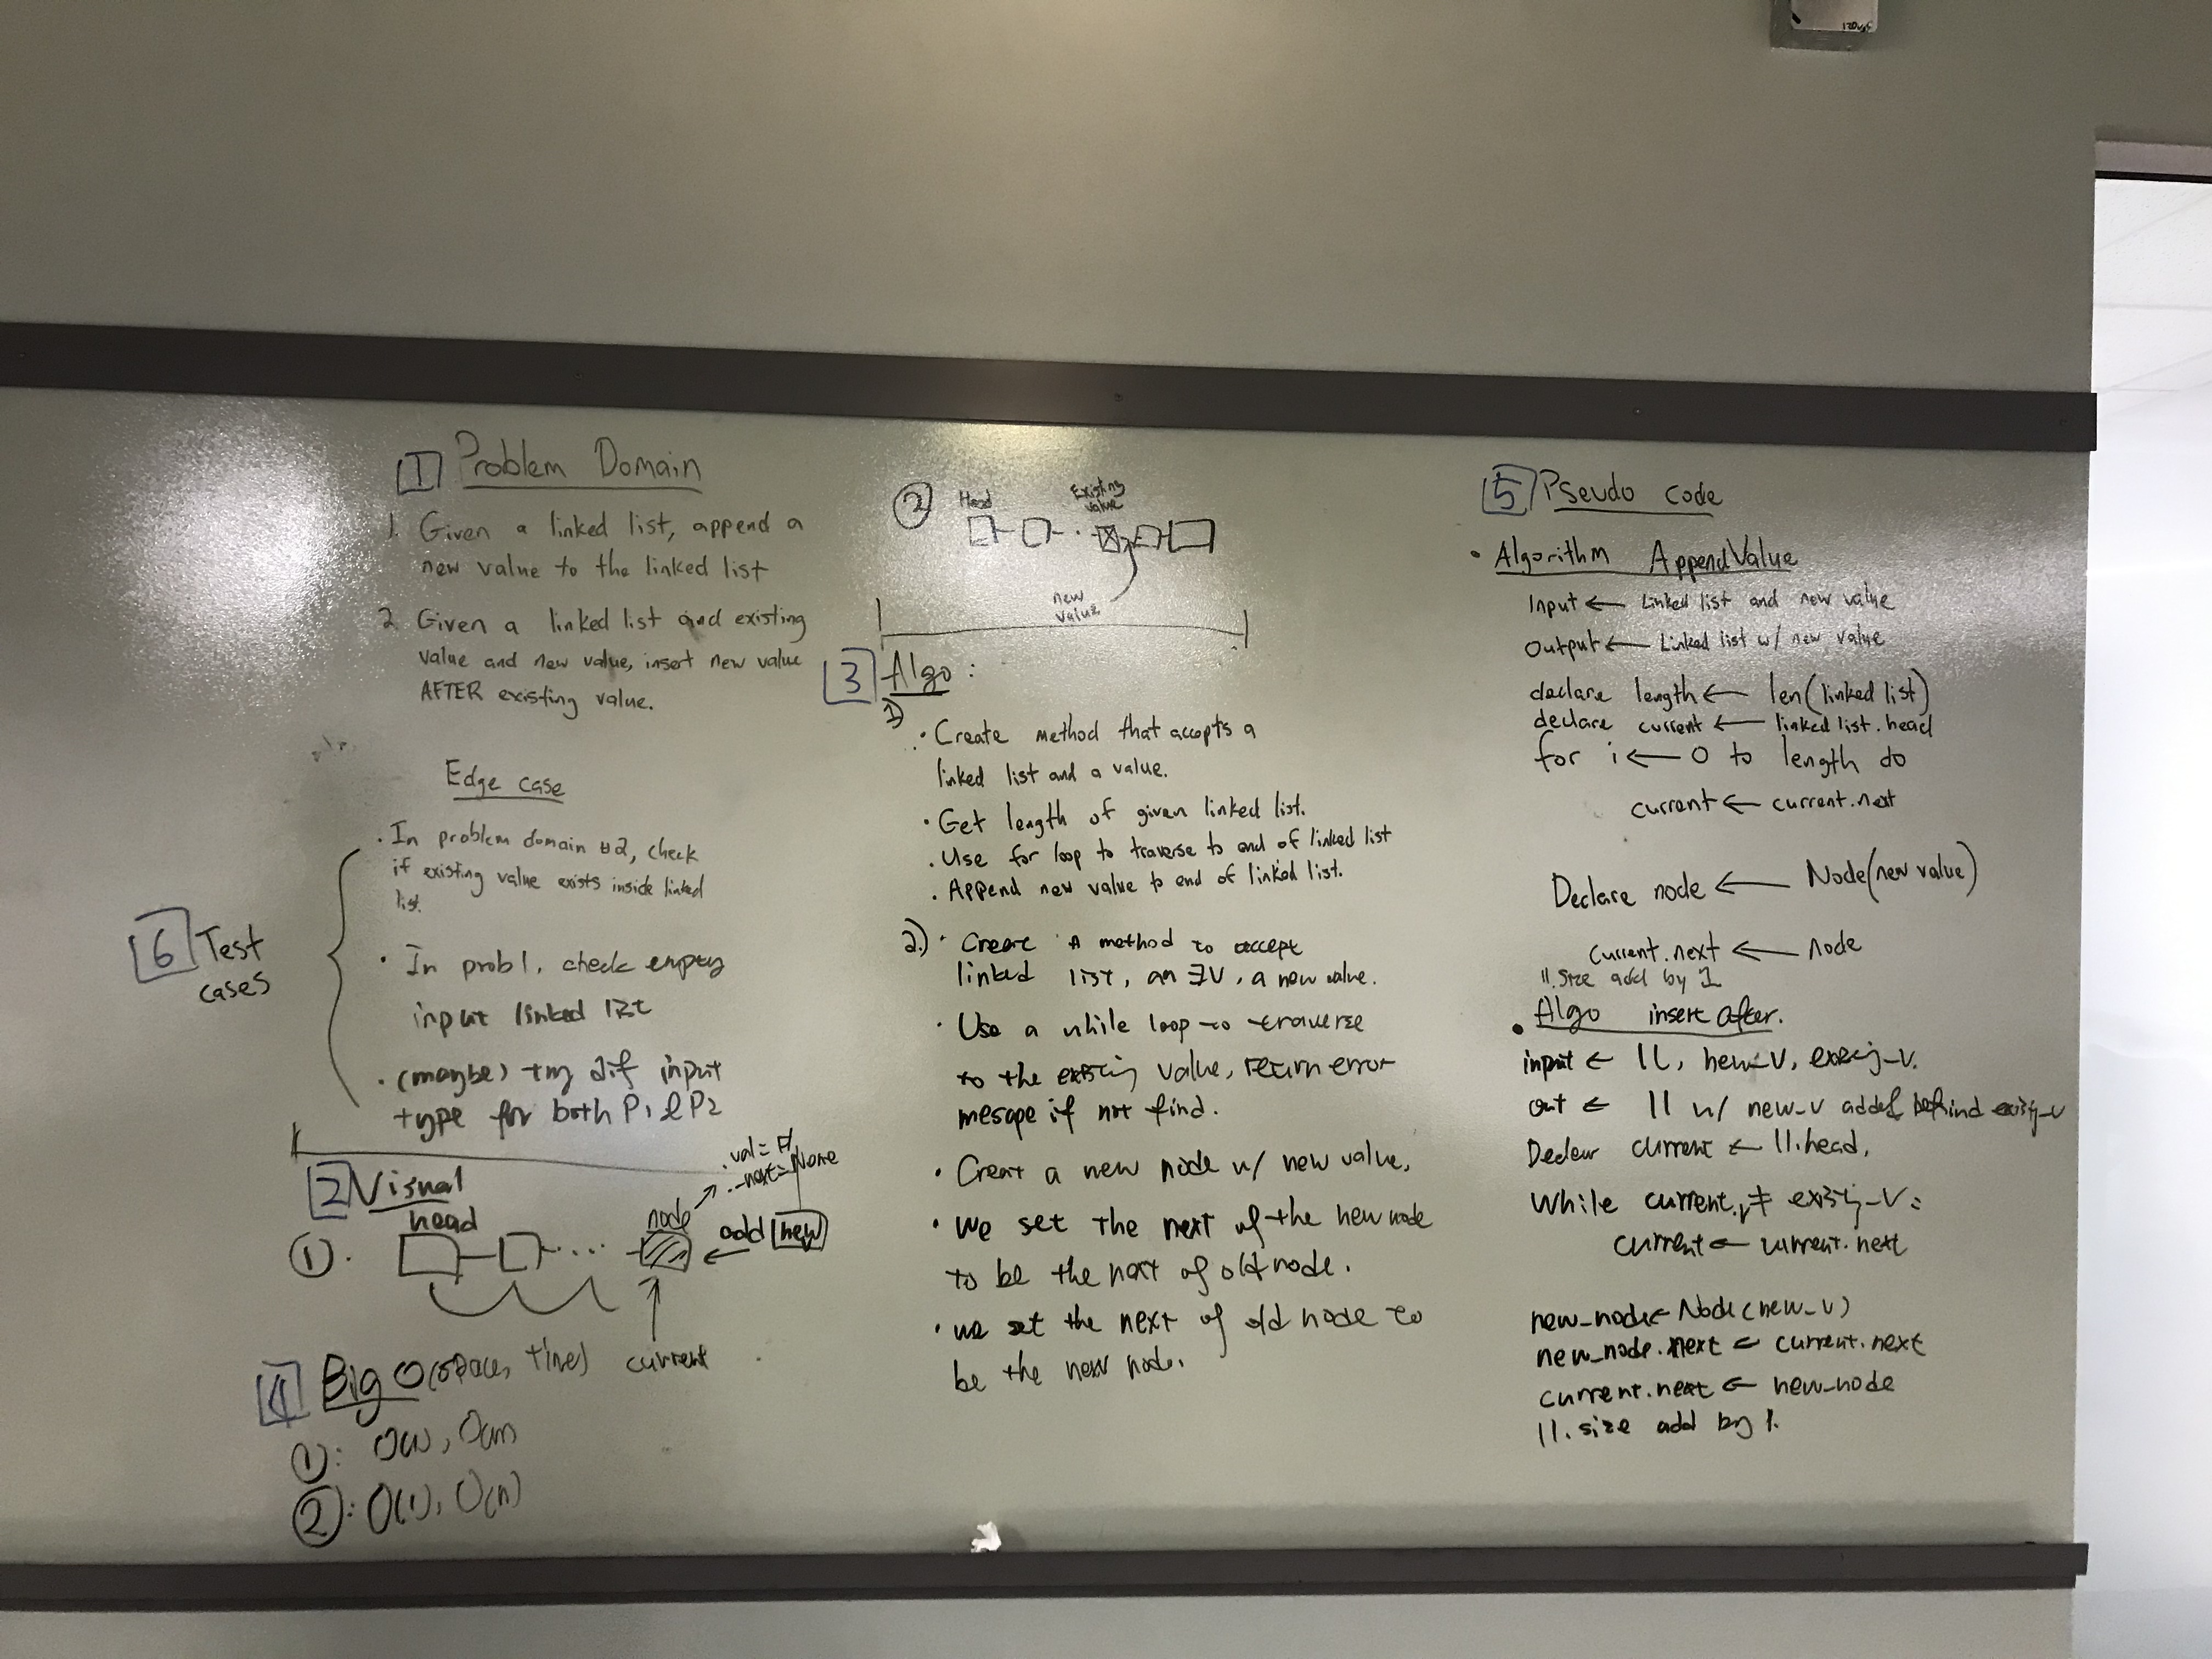 1 Problem Domain
1. Given a linked list, append a
new value to the linked list
2. Given a linked list and existing
value and new value, insert new value
AFTER existing value.
Edge case
6 Test
cases
. In problem domain #2, check
if existing value exists inside linked
list.
. In prob1, check empty
input linked list
. (maybe) try dif input
type for both P1 & P2
2 Visual
head
①.
node
.next=None
add new
current
4 Big O(space, time)
①: O(1), O(n)
②: O(1), O(n)
② Head
Existing
value
new
value
3 Algo:
1)
. Create method that accepts a
linked list and a value.
. Get length of given linked list.
. Use for loop to traverse to end of linked list
. Append new value to end of linked list.
2.) . Create A method to accept
linked list, an ∃V, a new value.
. Use a while loop to traverse
to the existing value, return error
mesage if not find.
. Creat a new node w/ new value.
. We set the next of the new node
to be the next of old node.
. we set the next of old node to
be the new node.
5 Pseudo code
. Algorithm AppendValue
Input ← Linked list and new value
Output ← Linked list w/ new value
declare length ← len(linked list)
declare current ← linked list.head
for i ← 0 to length do
current ← current.next
Declare node ← Node(new value)
current.next ← node
ll.size add by 1
. Algo insert after.
input ← ll, new_v, existing_v.
out ← ll w/ new_v added behind existing_v
Declar current ← ll.head.
While current.v ≠ existing_v:
current ← current.next
new_node ← Node(new_v)
new_node.next ← current.next
current.next ← new_node
ll.size add by 1.